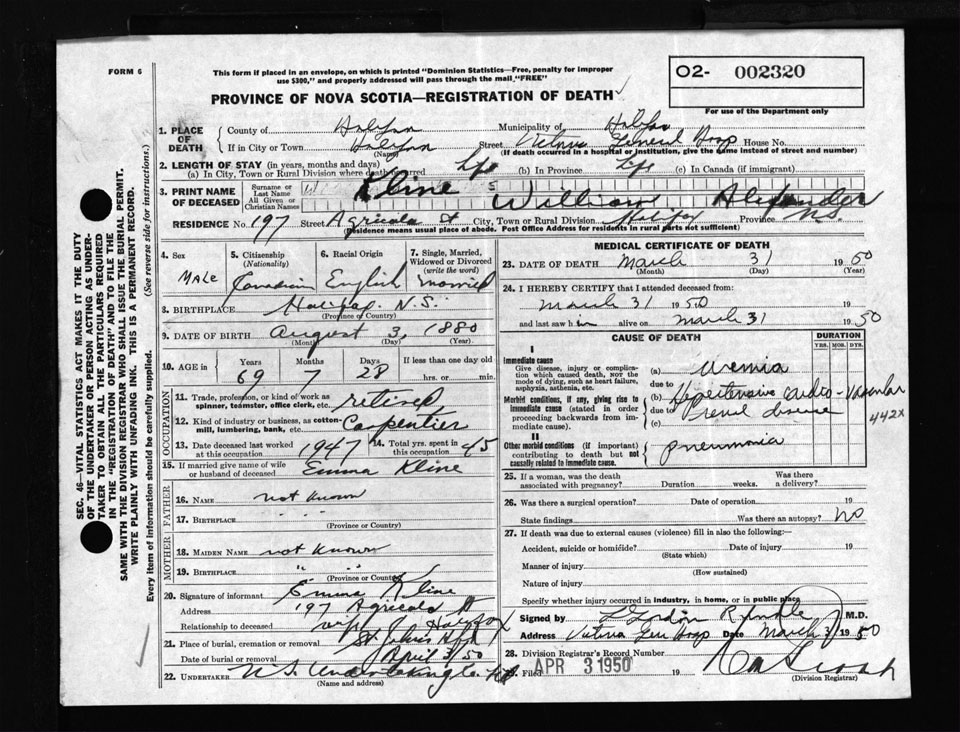 FORM 6
This form if placed in an envelope, on which is printed "Dominion Statistics—Free, penalty for improper
use $300," and properly addressed will pass through the mail "FREE"
O2- 002320
For use of the Department only
PROVINCE OF NOVA SCOTIA—REGISTRATION OF DEATH
SEC. 46—VITAL STATISTICS ACT MAKES IT THE DUTY
OF THE UNDERTAKER OR PERSON ACTING AS UNDER-
TAKER TO OBTAIN ALL THE PARTICULARS REQUIRED
IN THE "REGISTRATION OF DEATH" AND TO FILE THE
SAME WITH THE DIVISION REGISTRAR WHO SHALL ISSUE THE BURIAL PERMIT.
WRITE PLAINLY WITH UNFADING INK. THIS IS A PERMANENT RECORD.
Every item of information should be carefully supplied. (See reverse side for instructions.)
1. PLACE OF DEATH
County of Halifax Municipality of Halifax
If in City or Town Halifax Street Victoria General Hosp House No.
(Name) (If death occurred in a hospital or institution, give the name instead of street and number)
2. LENGTH OF STAY (in years, months and days)
(a) In City, Town or Rural Division where death occurred life (b) In Province life (c) In Canada (if immigrant)
3. PRINT NAME OF DECEASED
Surname or Last Name Kline
All Given or Christian Names William Alexander
RESIDENCE No. 197 Street Agricola St City, Town or Rural Division Halifax Province N.S.
(Residence means usual place of abode. Post Office Address for residents in rural parts not sufficient)
4. Sex 5. Citizenship (Nationality) 6. Racial Origin 7. Single, Married, Widowed or Divorced (write the word)
MALE Canadian English married
8. BIRTHPLACE Halifax N.S.
(Province or Country)
9. DATE OF BIRTH August 3, 1880
(Month) (Day) (Year)
10. AGE in Years Months Days If less than one day old
69 7 28 hrs. or min.
OCCUPATION
11. Trade, profession, or kind of work as spinner, teamster, office clerk, etc. retired
12. Kind of industry or business, as cotton-mill, lumbering, bank, etc. Carpentier
13. Date deceased last worked at this occupation 1947 14. Total yrs. spent in this occupation 45
15. If married give name of wife or husband of deceased Emma Kline
FATHER
16. NAME not known
17. BIRTHPLACE " " "
(Province or Country)
MOTHER
18. MAIDEN NAME not known
19. BIRTHPLACE " "
(Province or Country)
20. Signature of informant Emma Kline
Address 197 Agricola St
Relationship to deceased wife Halifax
21. Place of burial, cremation or removal St. Johns Hfx
Date of burial or removal April 3/50
22. UNDERTAKER N.S. Undertaking Co.
(Name and address)
MEDICAL CERTIFICATE OF DEATH
23. DATE OF DEATH March 31 1950
(Month) (Day) (Year)
24. I HEREBY CERTIFY that I attended deceased from:
March 31 1950
and last saw him alive on March 31 1950
CAUSE OF DEATH DURATION
YRS. MOS. DYS.
I
Immediate cause
Give disease, injury or complication which caused death, NOT the mode of dying, such as heart failure, asphyxia, asthenia, etc.
(a) Uremia
due to
Morbid conditions, if any, giving rise to immediate cause (stated in order proceeding backwards from immediate cause).
(b) Hypertensive cardio-vascular
due to renal disease
442X
(c)
II
Other morbid conditions (if important) contributing to death but not causally related to immediate cause.
pneumonia
25. If a woman, was the death associated with pregnancy? Duration weeks. Was there a delivery?
26. Was there a surgical operation? Date of operation 19
State findings Was there an autopsy? No
27. If death was due to external causes (violence) fill in also the following:—
Accident, suicide or homicide? Date of injury 19
(State which)
Manner of injury
(How sustained)
Nature of injury
Specify whether injury occurred in industry, in home, or in public place
Signed by Gordon M.D.
Address Victoria Gen Hosp Date March 31 1950
28. Division Registrar's Record Number
Filed APR 3 1950 19
(Division Registrar)